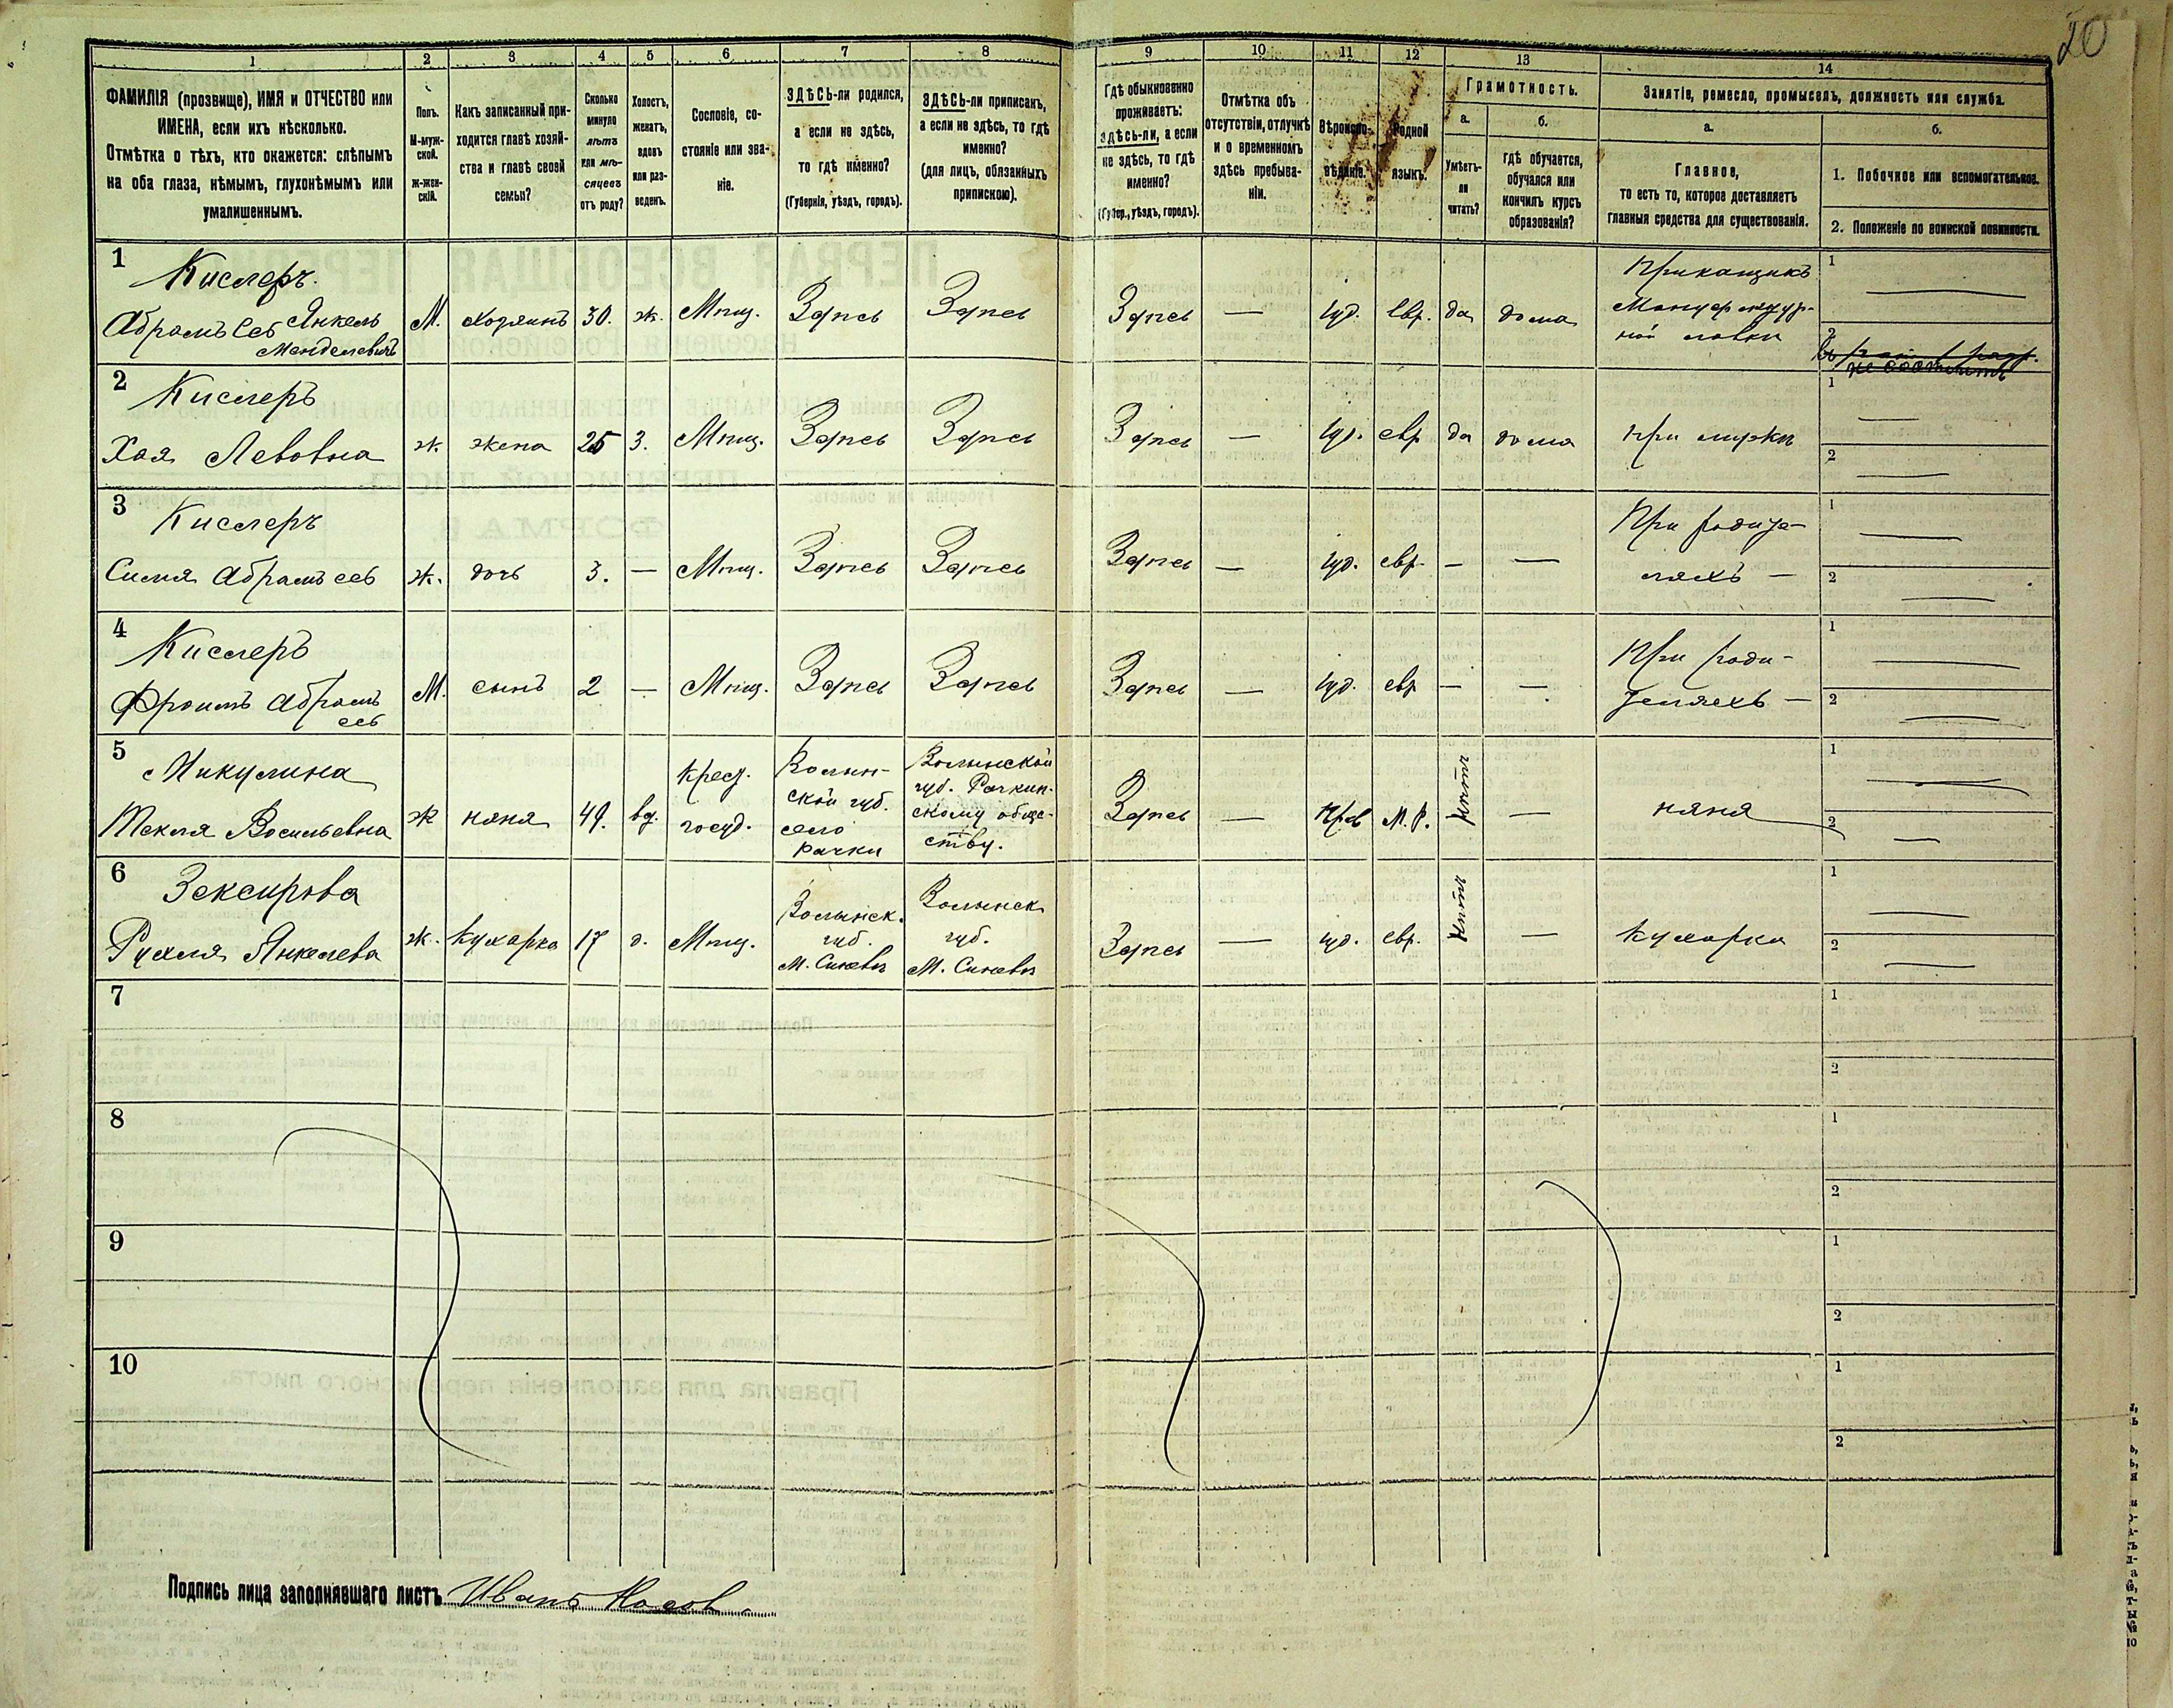 20
1 2 3 4 5 6 7 8 9 10 11 12 13 14
ФАМИЛІЯ (прозвище), ИМЯ и ОТЧЕСТВО или
ИМЕНА, если ихъ нѣсколько.
Отмѣтка о тѣхъ, кто окажется: слѣпымъ
на оба глаза, нѣмымъ, глухонѣмымъ или
умалишеннымъ.
Полъ.
М-муж-
ской.
ж-жен-
скій.
Какъ записанный при-
ходится главѣ хозяй-
ства и главѣ своей
семьи?
Сколько
минуло
лѣтъ
или мѣ-
сяцевъ
отъ роду?
Холостъ,
женатъ,
вдовъ
или раз-
веденъ.
Сословіе, со-
стояніе или зва-
ніе.
ЗДѢСЬ-ли родился,
а если не здѣсь,
то гдѣ именно?
(Губернія, уѣздъ, городъ).
ЗДѢСЬ-ли приписанъ,
а если не здѣсь, то гдѣ
именно?
(для лицъ, обязанныхъ
припискою).
Гдѣ обыкновенно
проживаетъ:
ЗДѢСЬ-ли, а если
не здѣсь, то гдѣ
именно?
(Губер., уѣздъ, городъ).
Отмѣтка объ
отсутствіи, отлучкѣ
и о временномъ
здѣсь пребыва-
ніи.
Вѣроиспо-
вѣданіе.
Родной
языкъ.
Грамотность.
а.
б.
Умѣетъ-
ли
читать?
гдѣ обучается,
обучался или
кончилъ курсъ
образованія?
Занятіе, ремесло, промыселъ, должность или служба.
а.
б.
Главное,
то есть то, которое доставляетъ
главныя средства для существованія.
1. Побочное или вспомогательное.
2. Положеніе по воинской повинности.
1 Кислеръ.
Абрамъ Лев Янкель
Менделевичъ
М. хозяинъ 30. ж. Мѣщ. Здѣсь Здѣсь Здѣсь — іуд. Евр. да дома
Прикащикъ
Мануфактур-
ной лавки
1 —
2
2 Кислеръ
Хая Левовна ж. жена 25 З. Мѣщ. Здѣсь Здѣсь Здѣсь — іуд. евр да дома при мужѣ
1 —
2 —
3 Кислеръ
ж. дочь 3. — Мѣщ. Здѣсь Здѣсь Здѣсь — іуд. евр. — —
При родите-
ляхъ —
1 —
2 —
4 Кислеръ
Фроимъ Абрамъ
М. сынъ 2 — Мѣщ. Здѣсь Здѣсь Здѣсь — іуд. евр — —
При роди-
теляхъ —
1 —
2 —
5 Микулина
Текля Васильевна ж няня 49. вд.
крест.
госуд.
Волын-
ской губ.
село
Рачки
Волынской
губ. Рачкин-
скому обще-
ству.
Здѣсь — Прав М. Р. нѣтъ — няня
1 —
2 —
6
Рухля Янкелева ж. Кухарка 17 д. Мѣщ.
Волынск.
губ.
Волынск
губ.
Здѣсь — іуд. евр. нѣтъ — Кухарка
1 —
2 —
7
1
2
8
1
2
9
1
2
10
1
2
Подпись лица заполнявшаго листъ Иванъ Носов